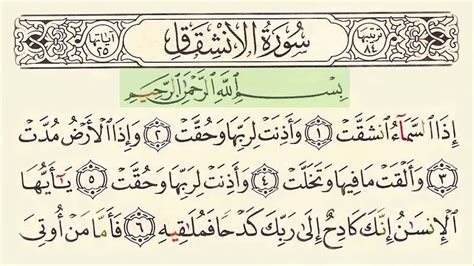 ترتيبها ٨٤ سُورَةُ الِانشِقَاقِ آياتها ٢٥
بِسْمِ اللَّهِ الرَّحْمَٰنِ الرَّحِيمِ
إِذَا السَّمَاءُ انشَقَّتْ ١ وَأَذِنَتْ لِرَبِّهَا وَحُقَّتْ ٢ وَإِذَا الْأَرْضُ مُدَّتْ
٣ وَأَلْقَتْ مَا فِيهَا وَتَخَلَّتْ ٤ وَأَذِنَتْ لِرَبِّهَا وَحُقَّتْ ٥ يَٰٓأَيُّهَا
الْإِنسَٰنُ إِنَّكَ كَادِحٌ إِلَىٰ رَبِّكَ كَدْحًا فَمُلَٰقِيهِ ٦ فَأَمَّا مَنْ أُوتِيَ